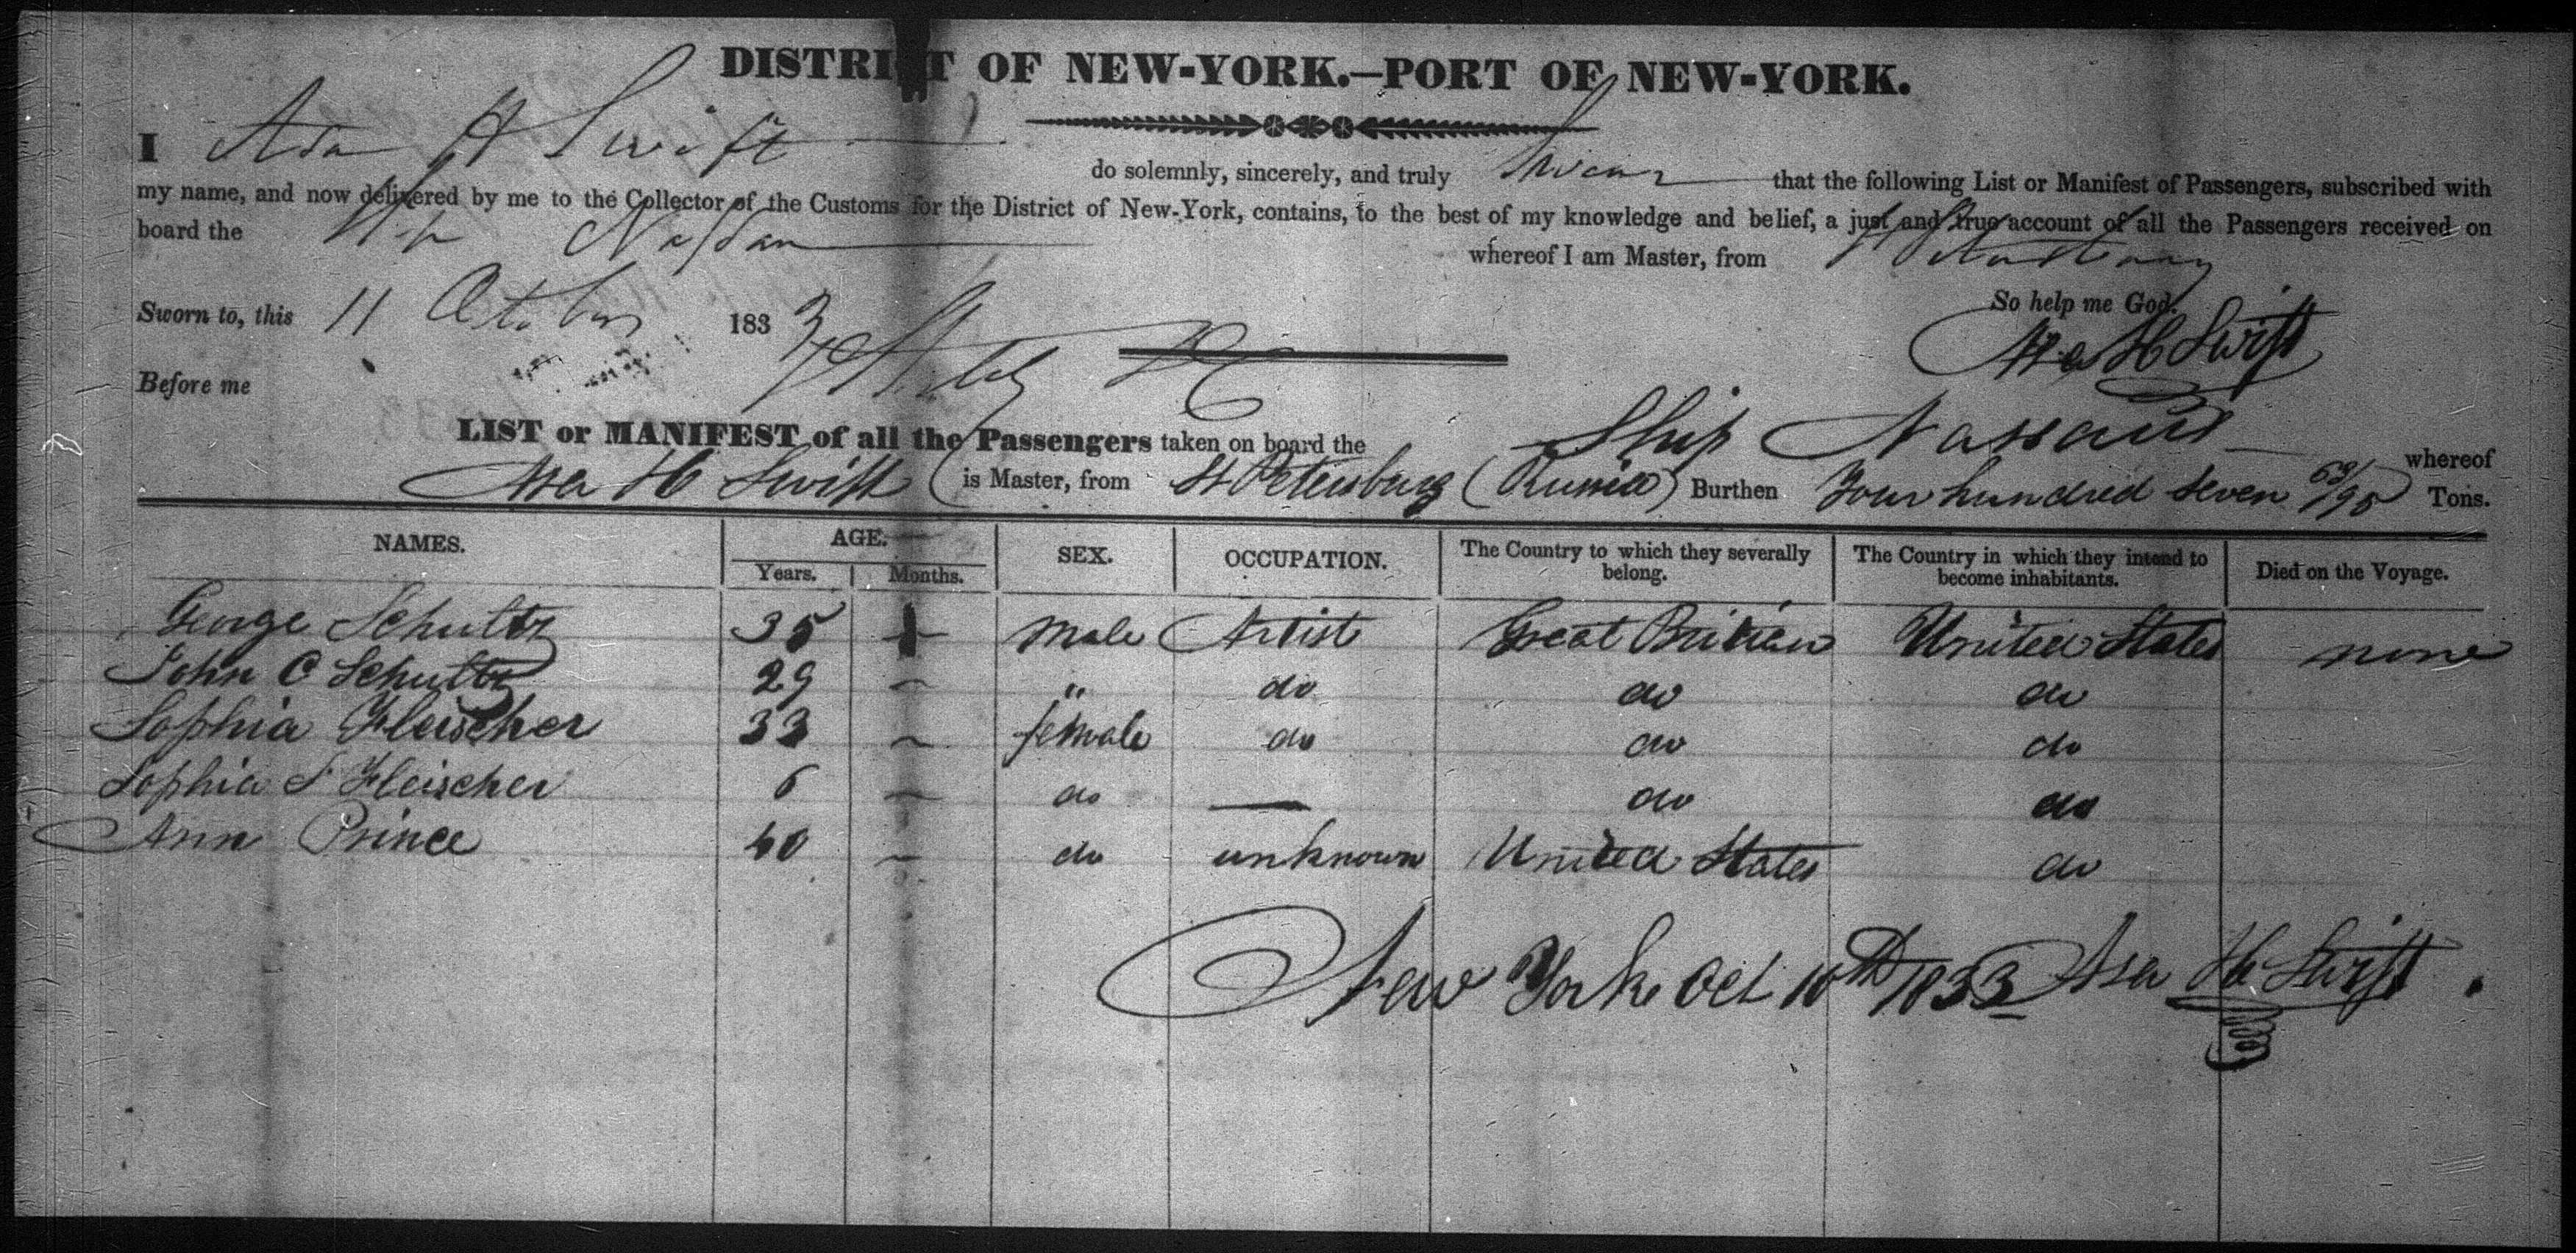 DISTRICT OF NEW-YORK.—PORT OF NEW-YORK.
I Asa H Swift do solemnly, sincerely, and truly Swear that the following List or Manifest of Passengers, subscribed with
my name, and now delivered by me to the Collector of the Customs for the District of New-York, contains, to the best of my knowledge and belief, a just and true account of all the Passengers received on
board the Ship Nassau whereof I am Master, from St Petersburg
So help me God.
Sworn to, this 11 October 1833 Asa H Swift
Before me
LIST or MANIFEST of all the Passengers taken on board the Ship Nassau whereof
Asa H Swift is Master, from St Petersburg (Russia) Burthen Four hundred seven 63/95 Tons.
NAMES. AGE. SEX. OCCUPATION. The Country to which they severally belong. The Country in which they intend to become inhabitants. Died on the Voyage.
Years. Months.
George Schultz 35 – Male Artist Great Britian United States none
John C Schultz 29 – " do do do
Sophia Fleischer 33 – female do do do
Sophia S Fleischer 6 – do — do do
Ann Prince 40 – do unknown United States do
New York Oct 10th 1833 Asa H Swift